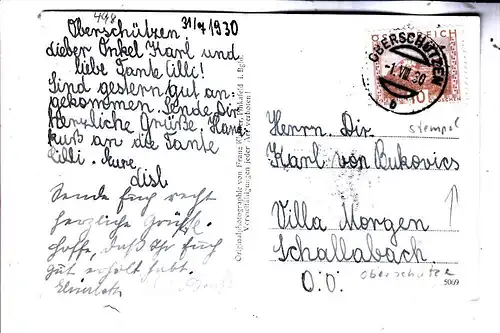 498
Oberschützen 31/7 1930
Lieber Onkel Karl und
liebe Tante Cilli!
Sind gestern gut an-
gekommen. Sende Dir
herzliche Grüße. Hand-
kuß an die Tante
Cilli. Eure
Lisl
Sende Euch recht
herzliche Grüße.
hoffe, daß Ihr Euch
gut erholt habt.
Elisabeth
Originalphotographie von Franz
Vervielfältigungen jeder Art verboten!
ÖSTERREICH
10 GROSCHEN
OBERSCHÜTZEN
-1.VII.30
b
stempel
Herrn. Dir.
Karl von Bukovics
Villa Morgen
Schallabach
O.Ö.
oberschützen
5069